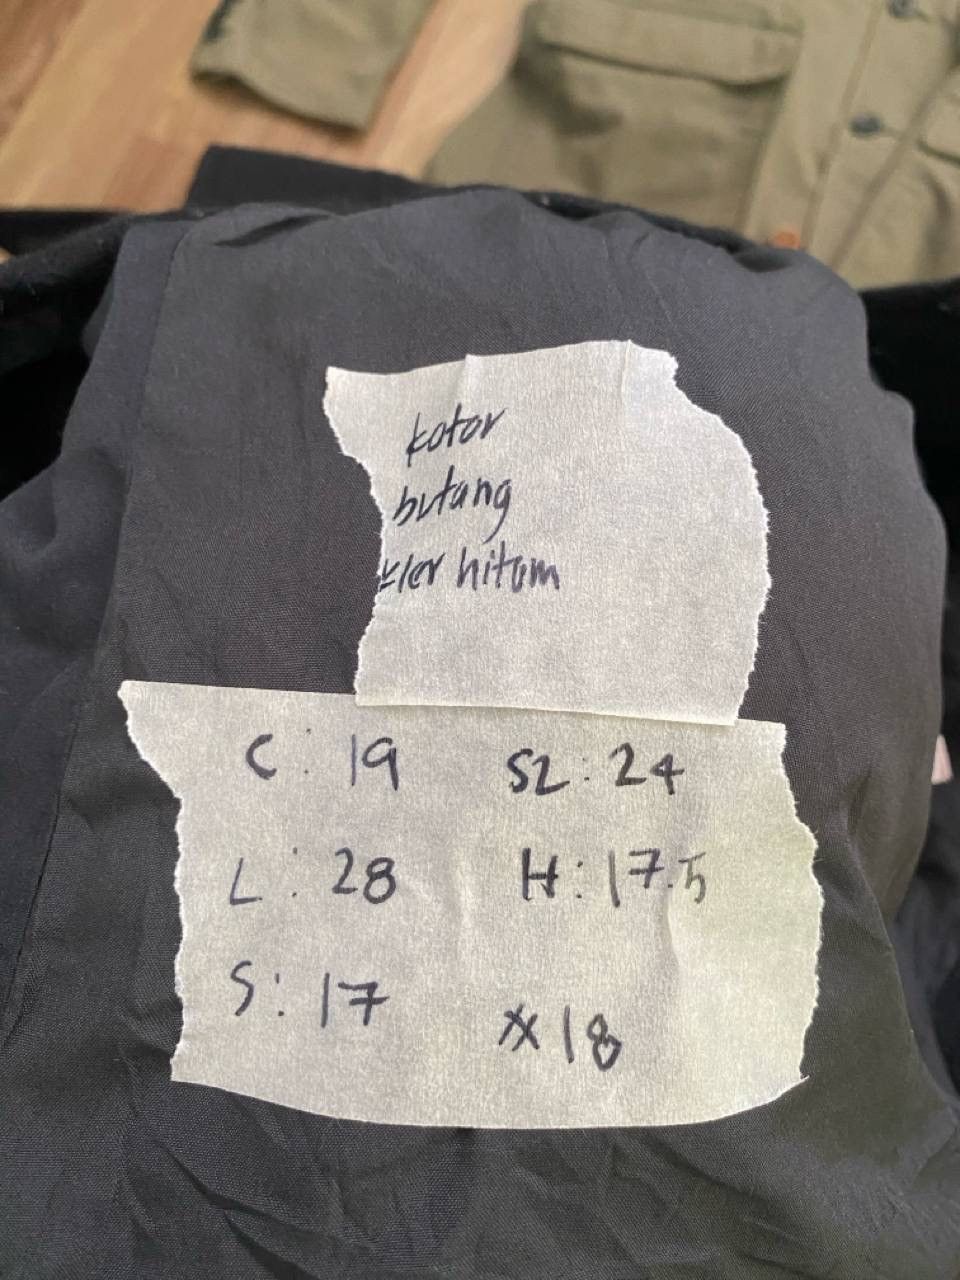 kotor
butang
kler hitam
C: 19 S2: 24
L: 28 H: 17.5
S: 17
18